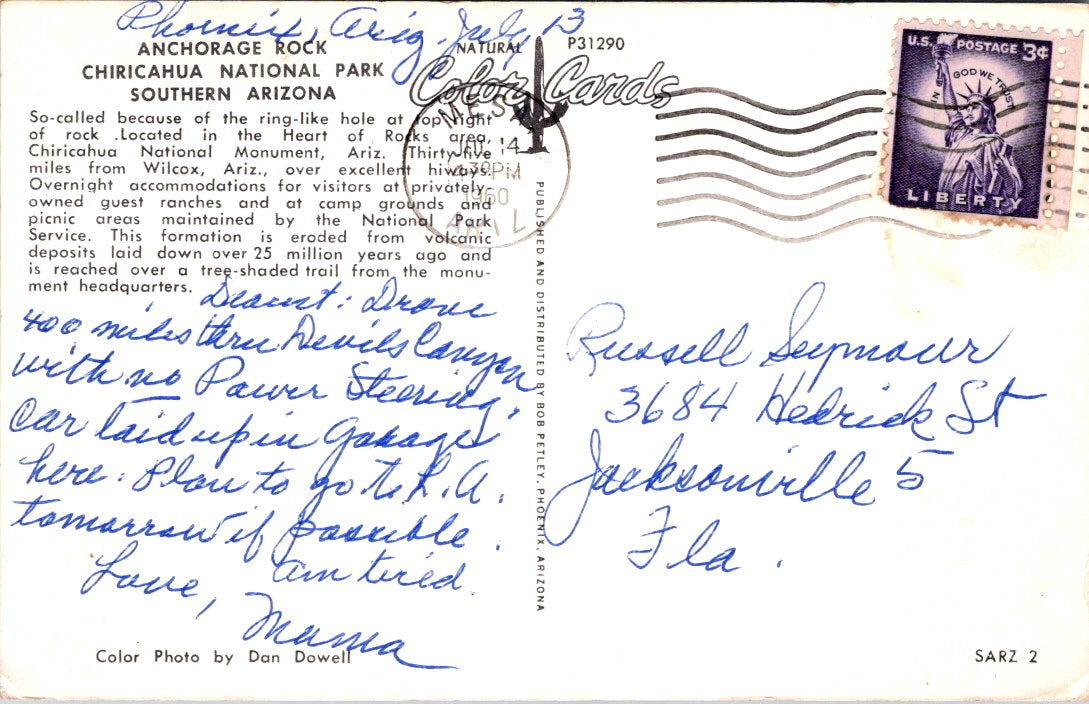 Phoenix, Ariz. July 13
ANCHORAGE ROCK
CHIRICAHUA NATIONAL PARK
SOUTHERN ARIZONA
So-called because of the ring-like hole at top right
of rock .Located in the Heart of Rocks area,
Chiricahua National Monument, Ariz. Thirty-five
miles from Wilcox, Ariz., over excellent hiways.
Overnight accommodations for visitors at privately-
owned guest ranches and at camp grounds and
picnic areas maintained by the National Park
Service. This formation is eroded from volcanic
deposits laid down over 25 million years ago and
is reached over a tree-shaded trail from the monu-
ment headquarters.
Dearest: Drove
400 miles thru Devils Canyon
with no Power Steering.
Car laid up in Garage
here. Plan to go to L.A.
tomorrow if possible.
Am tired.
Love,
Mama
Color Photo by Dan Dowell
NATURAL
Color Cards
P31290
14
30 PM
1960
PUBLISHED AND DISTRIBUTED BY BOB PETLEY, PHOENIX, ARIZONA
U.S. POSTAGE 3¢
IN GOD WE TRUST
LIBERTY
Russell Seymour
3684 Hedrick St
Jacksonville 5
Fla.
SARZ 2